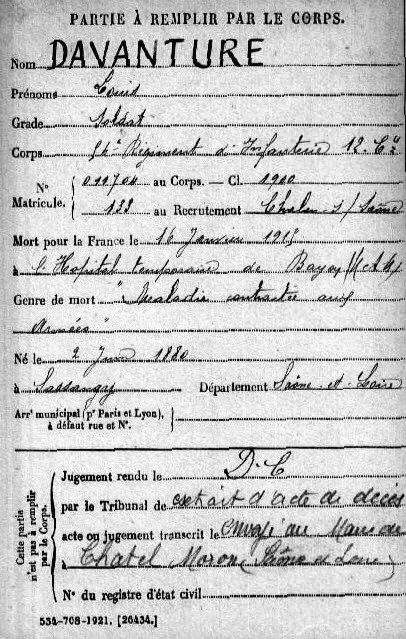 PARTIE À REMPLIR PAR LE CORPS.
Nom DAVANTURE
Prénoms Louis
Grade Soldat
Corps Régiment d'Infanterie 12 Cie
N° Matricule. { 011704 au Corps. — Cl. 1900
138 au Recrutement Chalon s/ Saône
Mort pour la France le 16 Janvier 1915
à l'Hopital temporaire de
Genre de mort " Maladie contractée aux
Armées "
Né le 2 Juin 1880
à Sassangy Département Saône-et-Loire
Arrt municipal (pr Paris et Lyon), à défaut rue et N°.
Cette partie n'est pas à remplir par le Corps.
Jugement rendu le D.C
par le Tribunal de extrait d'acte de décès
acte ou jugement transcrit le envoyé au Maire de
à Chatel Moron (Saône et Loire)
N° du registre d'état civil
534-708-1921. [26434.]